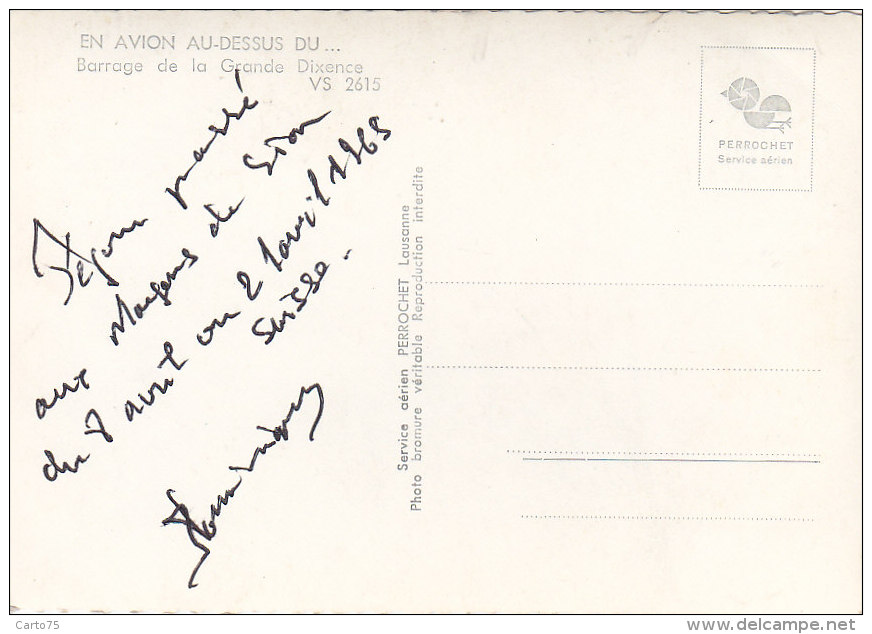 EN AVION AU-DESSUS DU...
Barrage de la Grande Dixence
VS 2615
PERROCHET
Service aérien
Séjour passé
aux Mayens de Sion
du 8 avril au 21 avril 1965
Suisse.
Service aérien PERROCHET Lausanne
Photo bromure véritable Reproduction interdite
Carto75
www.delcampe.net